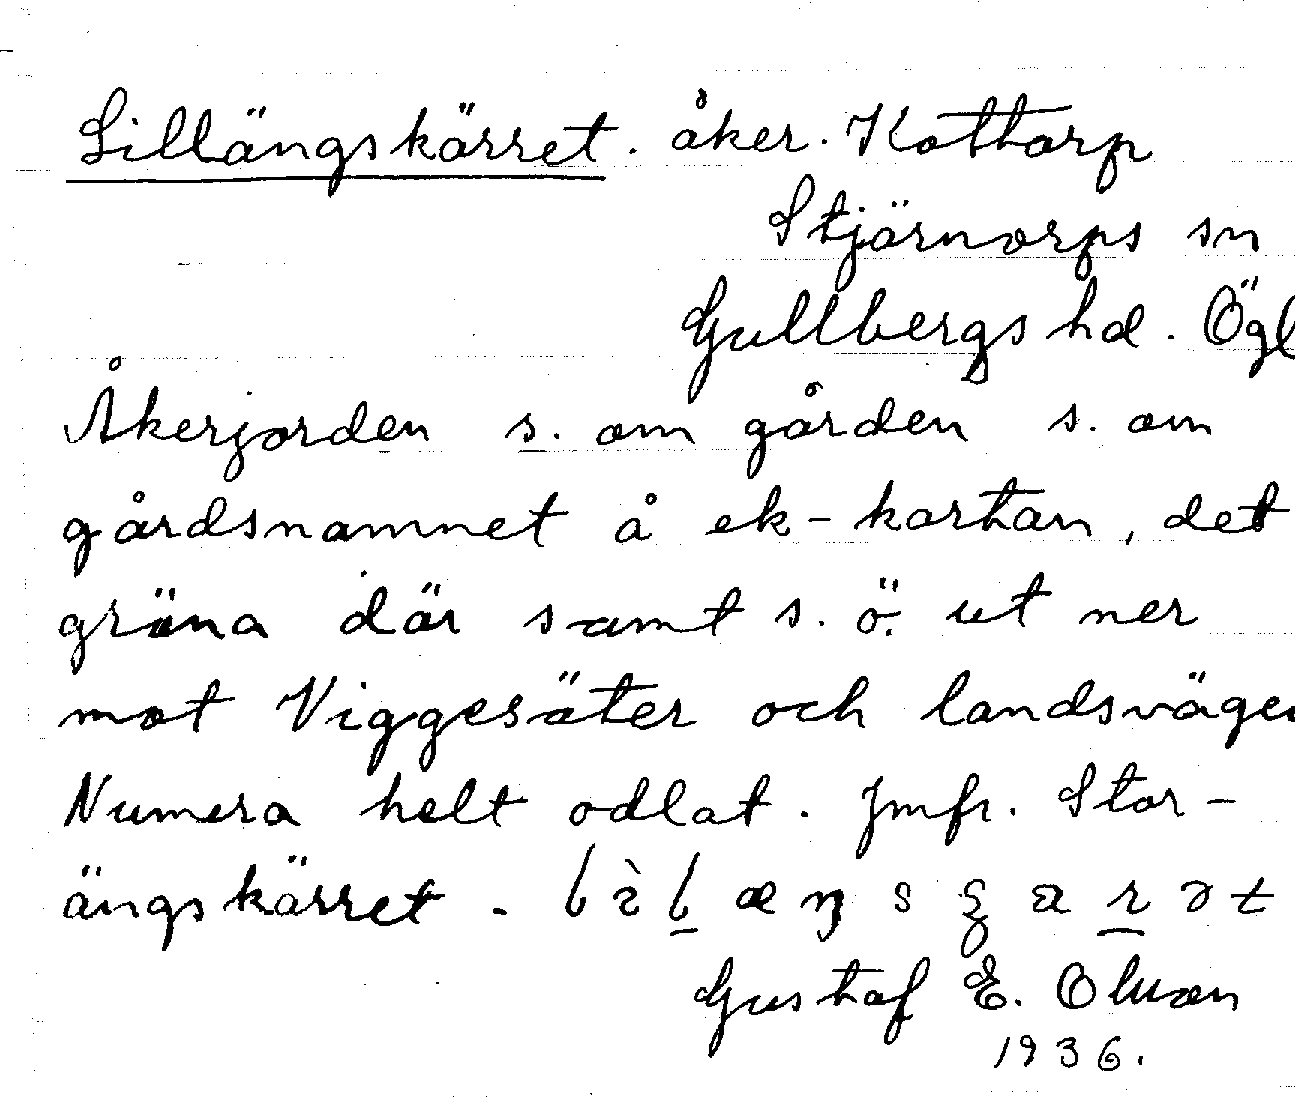 Lillängskärret. åker. Kottorp
Stjärnorps sn
Gullbergs hd. Ögl
Åkerjorden s. om gården s. om
gårdsnamnet å ek-kartan, det
gröna där samt s. ö. ut ner
mot Viggesäter och landsvägen
Numera helt odlat. Jmfr. Stor-
ängskärret -
Gustaf E. Olson
1936.